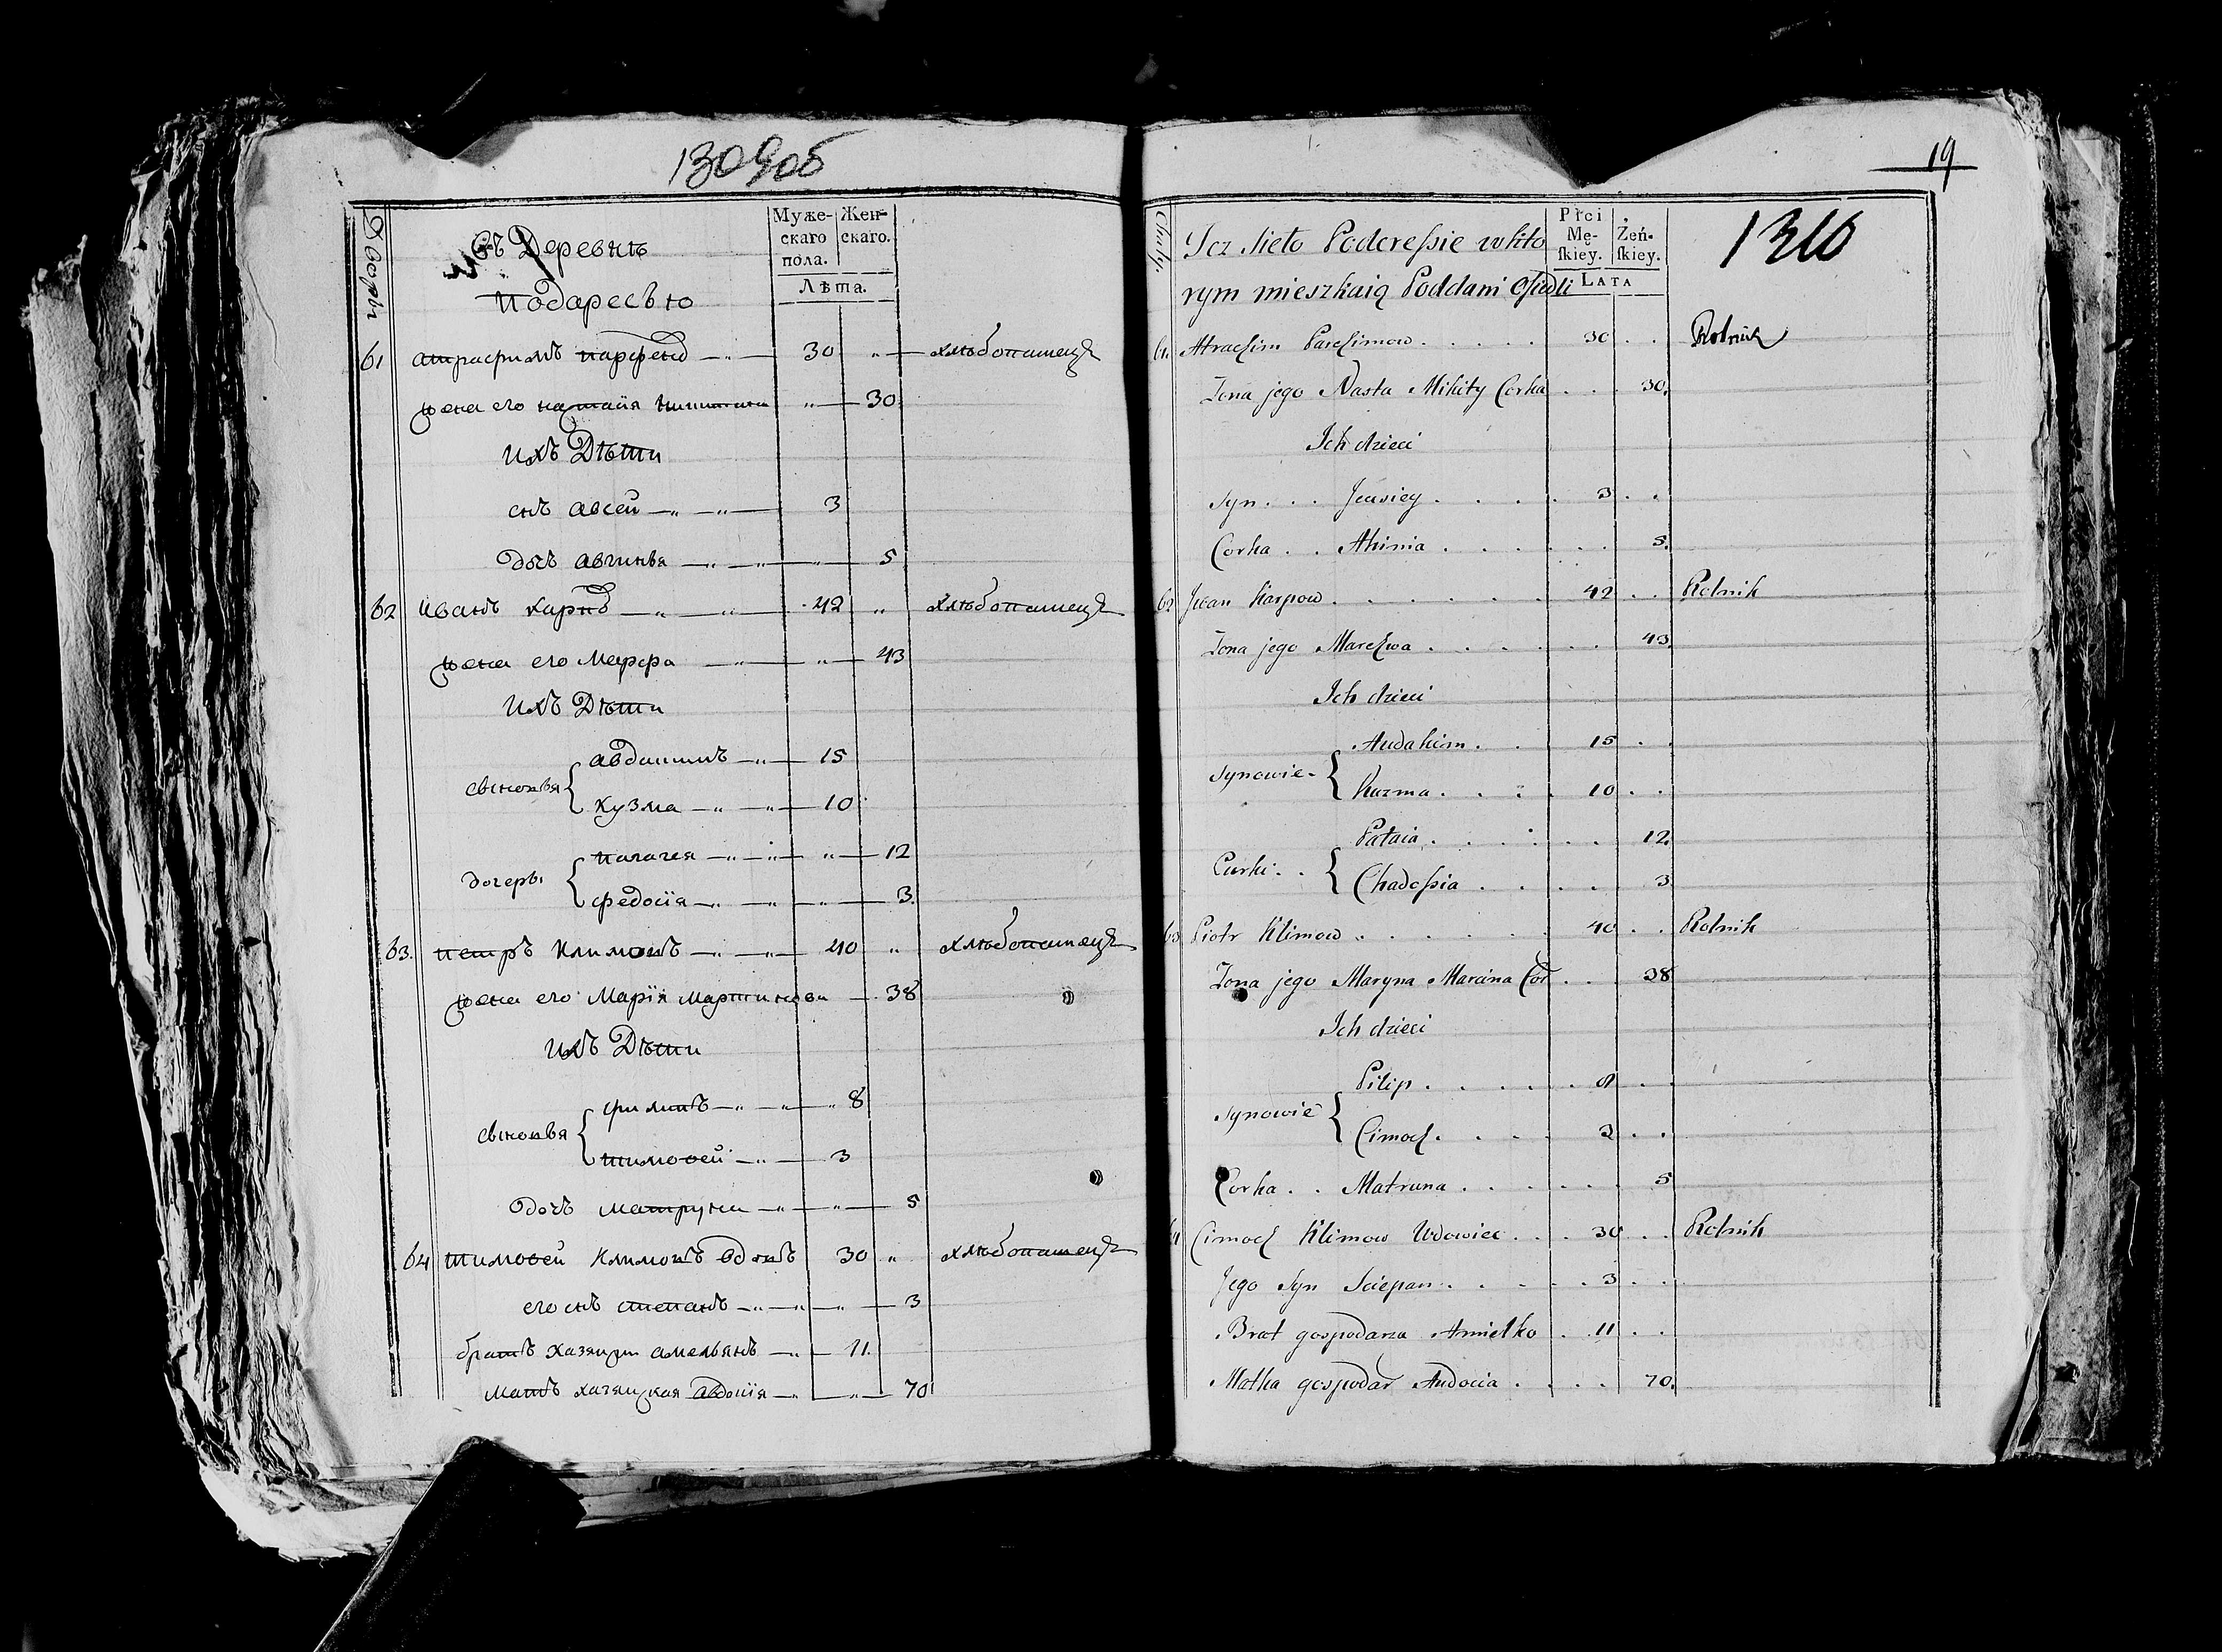 1309об
Дворы
Въ Деревнѣ
Подаресью
Муже-
скаго
пола.
Жен-
скаго.
Лѣта.
61 Атрафимъ Парфено —„— 30 „ — хлѣбопашецъ
жена его настазія Никитина „ — 30.
Ихъ Дѣти
снъ Авсей —„—„— 3
дочъ Авгинья —„—„—„— 5
62 Иванъ Карпо —„—„— 42 „ хлѣбопашецъ
жена его Марфа —„—„— 43
Ихъ Дѣти
сыновья { Авдакимъ —„— 15
Кузма —„—„— 10
дочеры { Палагея —„—„—„— 12
Федосія —„—„—„— 3.
63. Петръ Климовъ —„—„— 40 „ хлѣбопашецъ
жена его Марія Мартинова — 38
Ихъ Дѣти
сыновья { Филипъ —„—„—„ 8
Тимофей —„— 3
дочъ Матруна —„—„— 5
64 Тимофей Климовъ вдовъ 30 „ хлѣбопашецъ
его снъ Степанъ —„—„—„— 3
братъ хазяина Амельянъ —„— 11.
мать хазяиская Авдотія —„—„— 70
19
1310
Chaty.
Jez Sieło Poderessie w któ
rym mieszkaią Poddani Osiadli
Płci
Mę-
skiey.
Żeń-
skiey.
LATA
61. Atrachim Parchimow . . . . . 30 . . Rolnik
Żona jego Nasta Mikity Corka . . . 30.
Ich dzieci
Syn . . . Jewsiey . . . . . 3 . .
Corka . . Ahinia . . . . . . 5.
62 Jwan Karpow . . . . . . 42 . . Rolnik
Żona jego Marchwa . . . . . . . 43.
Ich dzieci
Synowie { Audakim . . 15 . .
Kuzma . . . . 10 . .
Curki . . { Pałaia . . . . . . 12.
Chadossia . . . . . 3
63 Piotr Klimow . . . . . . 40 . . Rolnik
Żona jego Maryna Marcina Cor . . . 38
Ich dzieci
Synowie { Pilip . . . . . 8 . .
Cimoch . . . . 3 . .
Corka . . Matruna . . . . . . 5
64 Cimoch Klimow Wdowiec . . . 30 . . Rolnik
Jego Syn Sciepan . . . . . 3 . .
Brat gospodarza Amielko . 11 . .
Matka gospodar Audocia . . . . 70.